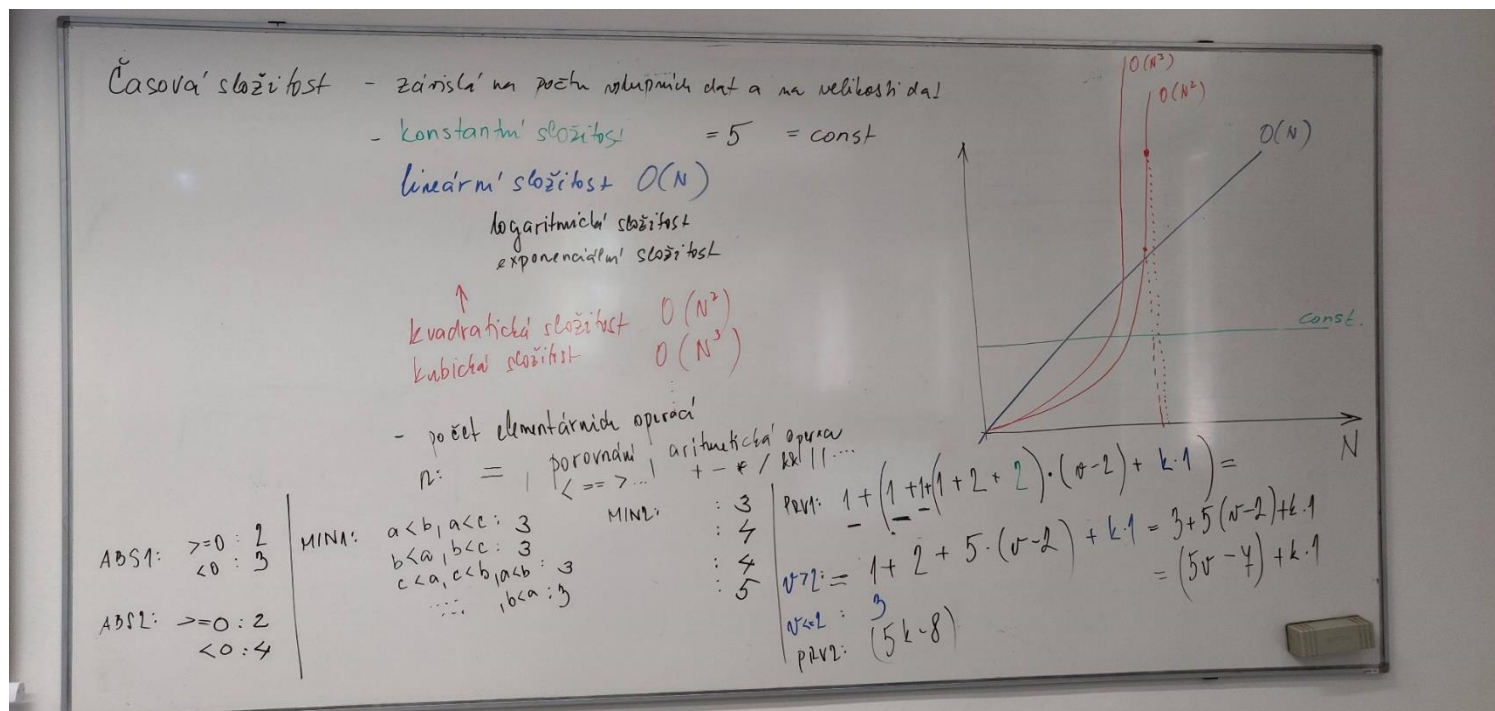 Časová složitost - závislá na počtu vstupních dat a na velikosti dat
- konstantní složitost = 5 = const
lineární složitost O(N)
logaritmická složitost
exponenciální složitost
↑
kvadratická složitost O(N²)
kubická složitost O(N³)
- počet elementárních operací
n: = , porovnání , aritmetická operace
< == > ... | + - * / && || ....
O(N³)
O(N²)
O(N)
const.
N
ABS1: >=0 : 2
<0 : 3
ABS2: >=0 : 2
<0 : 4
MIN1: a<b, a<c : 3
b<a, b<c : 3
c<a, c<b, a<b : 3
, b<a : 3
MIN2: : 3
: 4
: 4
: 5
PRV1: 1 + (1 + 1 + (1 + 2 + 2) · (v-2) + k·1) =
v>2: = 1 + 2 + 5 · (v-2) + k·1 = 3 + 5(v-2) + k·1
= (5v - 7) + k·1
v<=2 : 3
PRV2: (5k-8)